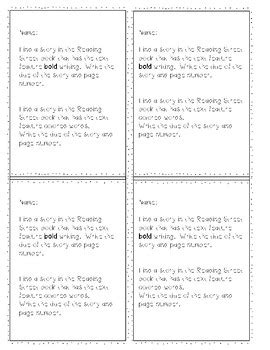 Name:
Find a story in the Reading
Street book that has the text
feature bold writing. Write the
title of the story and page
number.
Find a story in the Reading
Street book that has the text
feature colored words.
Write the title of the story and
page number.
Name:
Find a story in the Reading
Street book that has the text
feature bold writing. Write the
title of the story and page
number.
Find a story in the Reading
Street book that has the text
feature colored words.
Write the title of the story and
page number.
Name:
Find a story in the Reading
Street book that has the text
feature bold writing. Write
the title of the story and page
number.
Find a story in the Reading
Street book that has the text
feature colored words.
Write the title of the story and
page number.
Name:
Find a story in the Reading
Street book that has the text
feature bold writing. Write
the title of the story and page
number.
Find a story in the Reading
Street book that has the text
feature colored words.
Write the title of the story and
page number.